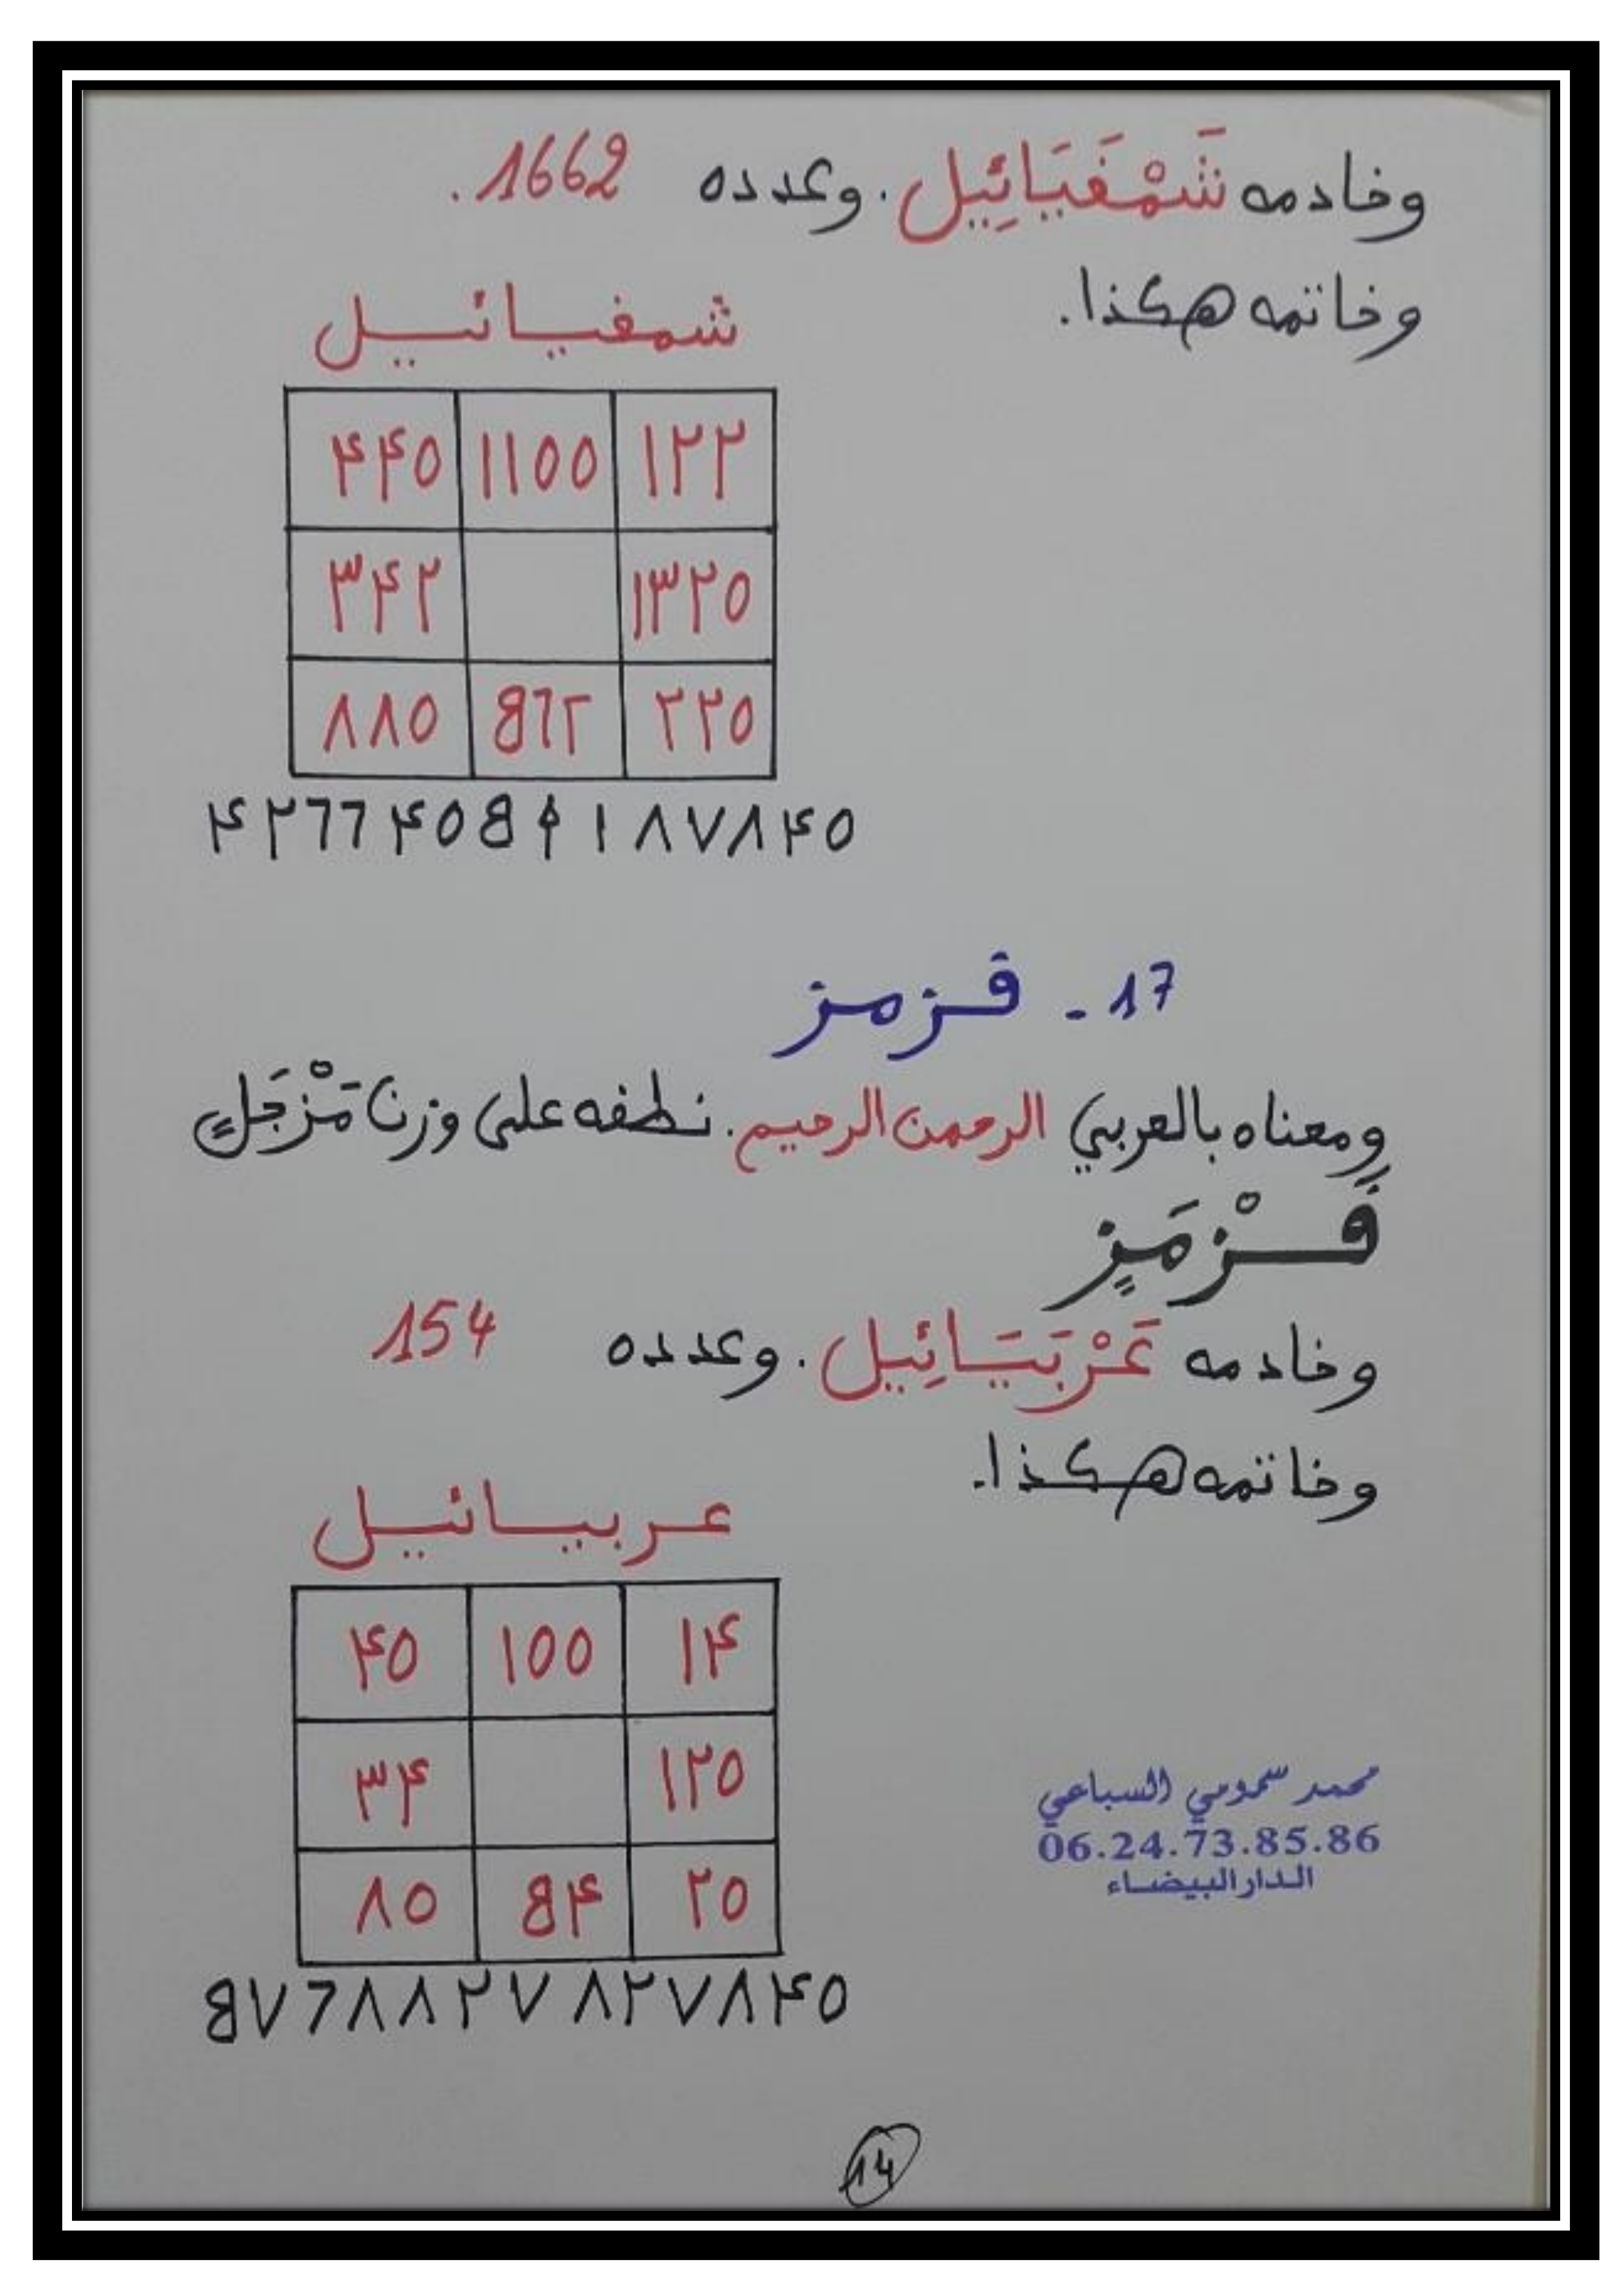 وخادمه شَمْغَيَائِيل. وعدده 1662.
وخاتمه هكذا.
شمغيائيل
۴۴٥ ١١٥٥ ١٢٢
٣۴٢ ١٣٢٥
٨٨٥ ٢٢٥
١٨٧٨۴٥
17 - قزمز
ومعناه بالعربي الرحمن الرحيم. نطفه على وزن
قَزْمَزٍ
وخادمه عَرْبَيَائِيل. وعدده 154
وخاتمه هكذا.
عربيائيل
۴٥ ١٥٥ ١۴
٣۴ ١٢٥
٨٥ 8۴ ٢٥
8٧٦٨٨٢٧٨٢٧٨۴٥
محمد سمومي السباعي
06.24.73.85.86
الدار البيضاء
14